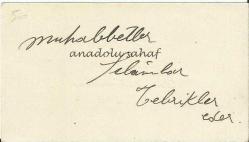 muhabbetler
anadolusahaf
Selâmlar
Tebrikler
eder.